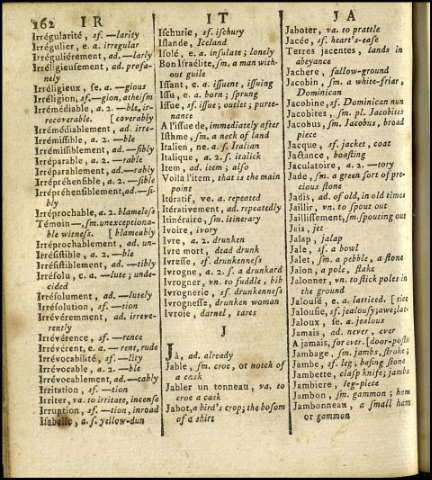 162 I R
Irrégularité, sf. —larity
Irrégulier, e. a. irregular
Irréguliérement, ad. —larly
Irréligieusement, ad. profa-
nely
Irréligieux, se. a. —gious
Irréligion, sf. —gion, atheism
Irrémédiable, a. 2. —ble, ir-
recoverable. [coverably
Irrémédiablement, ad. irre-
Irrémissible, a. 2. —ble
Irrémissiblement, ad. —sibly
Irréparable, a. 2. —rable
Irréparablement, ad. —rably
Irrépréhensible, a. 2. —sible
Irrépréhensiblement, ad. —si-
bly
Irréprochable, a. 2. blameless
Témoin —, sm. unexceptiona-
ble witness. [blameably
Irréprochablement, ad. un-
Irrésistible, a. 2. —ble
Irrésistiblement, ad. —tibly
Irrésolu, e. a. —lute; unde-
cided
Irrésolument, ad. —lutely
Irrésolution, sf. —tion
Irrévéremment, ad. irreve-
rently
Irrévérence, sf. —rence
Irrévérent, e. a. —rent, rude
Irrévocabilité, sf. —lity
Irrévocable, a. 2. —ble
Irrévocablement, ad. —cably
Irritation, sf. —tion
Irriter, va. to irritate, incense
Irruption, sf. —tion, inroad
Isabelle, a. s. yellow-dun
I T
Ischurie, sf. ischury
Islande, Iceland
Isolé, e. a. insulate; lonely
Bon Israélite, sm. a man with-
out guile
Issant, e. a. issuene, issuing
Issu, e. a. born; sprung
Issue, sf. issue; outlet; purte-
nance
A l'issue de, immediately after
Isthme, sm. a neck of land
Italien, ne. a. s. Italian
Italique, a. 2. s. italick
Item, ad. item; also
Voilà l'item, that is the main
point
Itératif, ve. a. repeated
Itérativement, ad. repeatedly
Itinéraire, sm. itinerary
Ivoire, ivory
Ivre, a. 2. drunken
Ivre mort, dead drunk
Ivresse, sf. drunkenness
Ivrogne, a. 2. s. a drunkard
Ivrogner, vn. to fuddle, bib
Ivrognerie, sf. drunkenness
Ivrognesse, drunken woman
Ivroie, darnel, tares
J
Jà, ad. already
Jable, sm. croc, or notch of
a cask
Jabler un tonneau, va. to
croe a cask
Jabot, a bird's crop; the bosom
of a shirt
J A
Jaboter, va. to prattle
Jacée, sf. heart's-ease
Terres jacentes, lands in
abeyance
Jachere, fallow-ground
Jacobin, sm. a white-friar,
Dominican
Jacobine, sf. Dominican nun
Jacobites, sm. pl. Jacobites
Jacobus, sm. Jacobus, broad
piece
Jacque, sf. jacket, coat
Jactance, boasting
Jaculatoire, a. 2. —tory
Jade, sm. a green sort of pre-
cious stone
Jadis, ad. of old, in old times
Jaillir, vn. to spout out
Jaillissement, sm. spouting out
Jais, jet
Jalap, jalap
Jale, sf. a bowl
Jalet, sm. a pebble, a stone
Jalon, a pole, stake
Jalonner, vn. to stick poles in
the ground
Jalousé, e. a. latticed. [tice
Jalousie, sf. jealousy; jaws; lat-
Jaloux, se. a. jealous
Jamais, ad. never, ever
A jamais, for ever. [door-posts
Jambage, sm. jambs, stroke;
Jambe, sf. leg; basing stone
Jambette, clasp knife; jambs
Jambiere, leg-piece
Jambon, sm. gammon; ham
Jambonneau, a small ham
or gammon